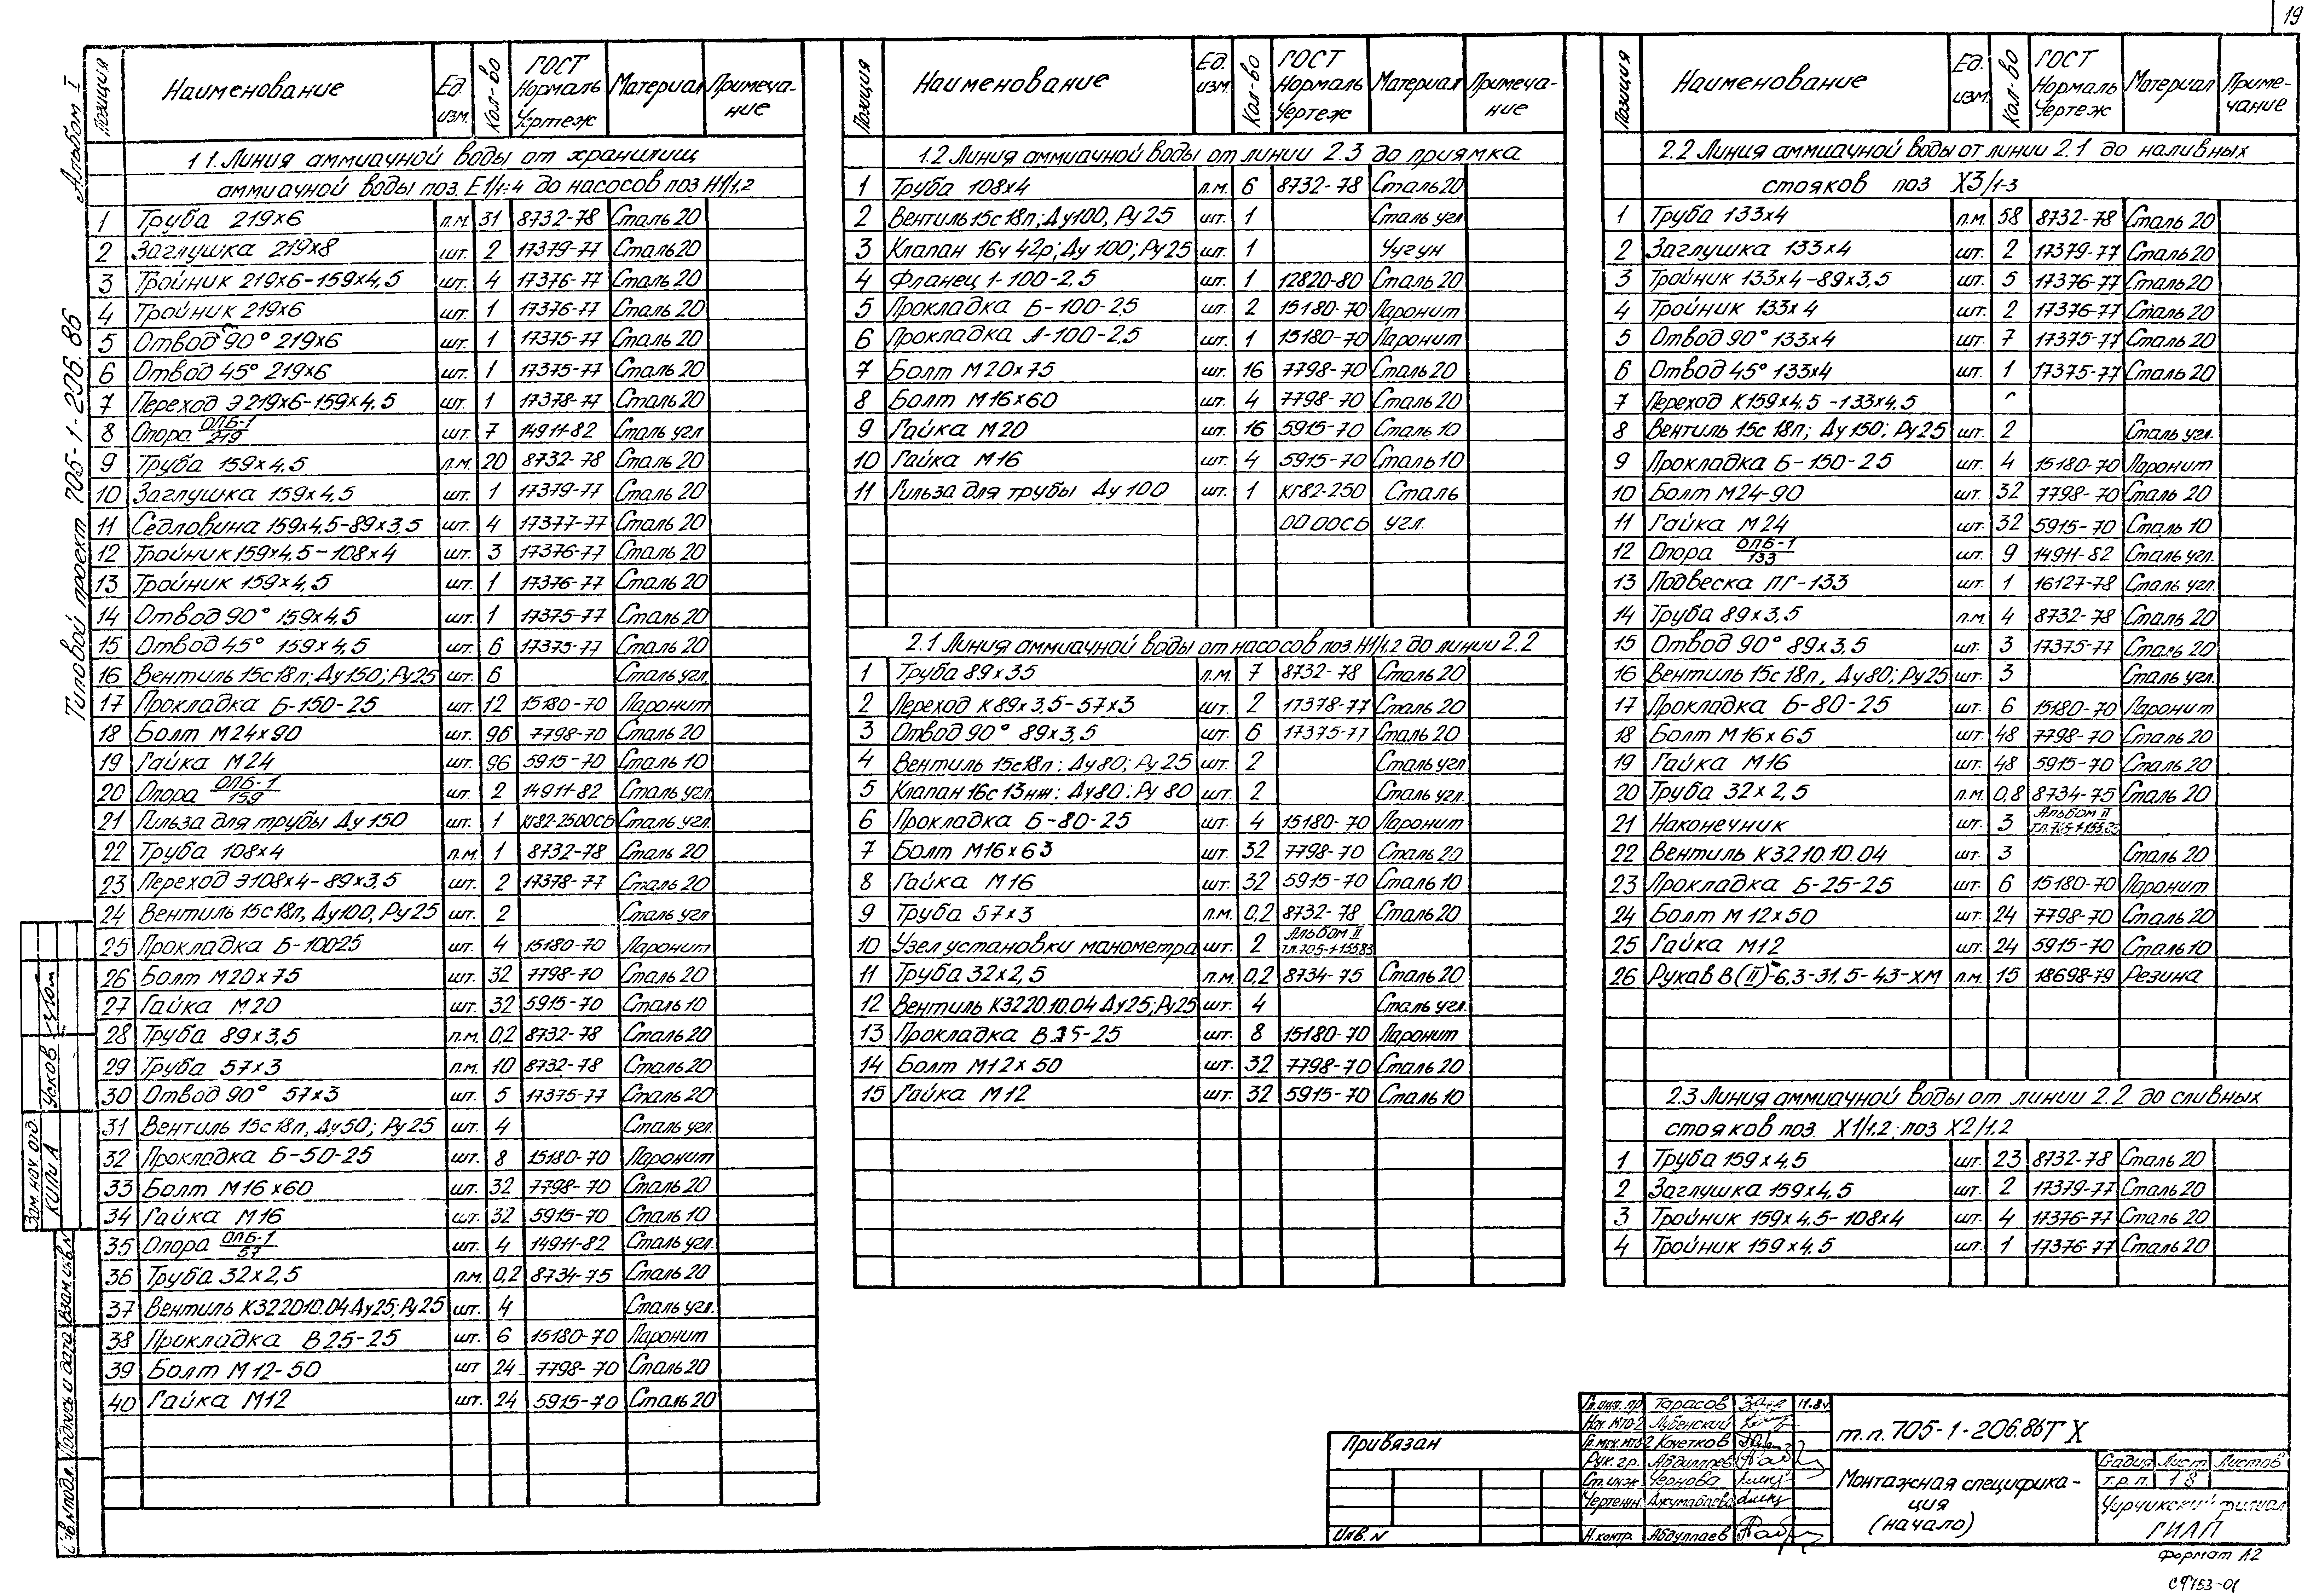 19
Альбом I
Типовой проект 705-1-206.86
Позиция Наименование Ед. изм. Кол-во ГОСТ Нормаль Чертеж Материал Примечание
1.1. Линия аммиачной воды от хранилищ
аммиачной воды поз. Е1/1÷4 до насосов поз Н1/1,2
1 Труба 219х6 п.м. 31 8732-78 Сталь 20
2 Заглушка 219х8 шт. 2 17379-77 Сталь 20
3 Тройник 219х6-159х4,5 шт. 4 17376-77 Сталь 20
4 Тройник 219х6 шт. 1 17376-77 Сталь 20
5 Отвод 90° 219х6 шт. 1 17375-77 Сталь 20
6 Отвод 45° 219х6 шт. 1 17375-77 Сталь 20
7 Переход Э 219х6-159х4,5 шт. 1 17378-77 Сталь 20
8 Опора ОПБ-1/219 шт. 7 14911-82 Сталь угл
9 Труба 159х4,5 п.м. 20 8732-78 Сталь 20
10 Заглушка 159х4,5 шт. 1 17379-77 Сталь 20
11 Седловина 159х4,5-89х3,5 шт. 4 17377-77 Сталь 20
12 Тройник 159х4,5-108х4 шт. 3 17376-77 Сталь 20
13 Тройник 159х4,5 шт. 1 17376-77 Сталь 20
14 Отвод 90° 159х4,5 шт. 1 17375-77 Сталь 20
15 Отвод 45° 159х4,5 шт. 6 17375-77 Сталь 20
16 Вентиль 15с18п; Ду150; Ру25 шт. 6 Сталь угл.
17 Прокладка Б-150-25 шт. 12 15180-70 Паронит
18 Болт М24х90 шт. 96 7798-70 Сталь 20
19 Гайка М24 шт. 96 5915-70 Сталь 10
20 Опора ОПБ-1/159 шт. 2 14911-82 Сталь угл.
21 Гильза для трубы Ду 150 шт. 1 КГ82-2500СБ Сталь угл.
22 Труба 108х4 п.м. 1 8732-78 Сталь 20
23 Переход Э108х4-89х3,5 шт. 2 17378-77 Сталь 20
24 Вентиль 15с18п, Ду100, Ру25 шт. 2 Сталь угл
25 Прокладка Б-10025 шт. 4 15180-70 Паронит
26 Болт М20х75 шт. 32 7798-70 Сталь 20
27 Гайка М20 шт. 32 5915-70 Сталь 10
28 Труба 89х3,5 п.м. 0,2 8732-78 Сталь 20
29 Труба 57х3 п.м. 10 8732-78 Сталь 20
30 Отвод 90° 57х3 шт. 5 17375-77 Сталь 20
31 Вентиль 15с18п, Ду50; Ру25 шт. 4 Сталь угл.
32 Прокладка Б-50-25 шт. 8 15180-70 Паронит
33 Болт М16х60 шт. 32 7798-70 Сталь 20
34 Гайка М16 шт. 32 5915-70 Сталь 10
35 Опора ОПБ-1/57 шт. 4 14911-82 Сталь угл.
36 Труба 32х2,5 п.м. 0,2 8734-75 Сталь 20
37 Вентиль К322010.04 Ду25; Ру25 шт. 4 Сталь угл.
38 Прокладка В25-25 шт. 6 15180-70 Паронит
39 Болт М12-50 шт 24 7798-70 Сталь 20
40 Гайка М12 шт. 24 5915-70 Сталь 20
Позиция Наименование Ед. изм. Кол-во ГОСТ Нормаль Чертеж Материал Примечание
1.2 Линия аммиачной воды от линии 2.3 до приямка
1 Труба 108х4 п.м. 6 8732-78 Сталь 20
2 Вентиль 15с18п; Ду100, Ру25 шт. 1 Сталь угл
3 Клапан 16ч 42р; Ду 100; Ру25 шт. 1 Чугун
4 Фланец 1-100-2,5 шт. 1 12820-80 Сталь 20
5 Прокладка Б-100-2,5 шт. 2 15180-70 Паронит
6 Прокладка А-100-2,5 шт. 1 15180-70 Паронит
7 Болт М20х75 шт. 16 7798-70 Сталь 20
8 Болт М16х60 шт. 4 7798-70 Сталь 20
9 Гайка М20 шт. 16 5915-70 Сталь 10
10 Гайка М16 шт. 4 5915-70 Сталь 10
11 Гильза для трубы Ду 100 шт. 1 КГ82-250 Сталь
00 00СБ угл.
2.1 Линия аммиачной воды от насосов поз. Н1/1.2 до линии 2.2
1 Труба 89х35 п.м. 7 8732-78 Сталь 20
2 Переход К89х3,5-57х3 шт. 2 17378-77 Сталь 20
3 Отвод 90° 89х3,5 шт. 6 17375-77 Сталь 20
4 Вентиль 15с18п: Ду80; Ру25 шт. 2 Сталь угл
5 Клапан 16с13нж: Ду80; Ру 80 шт. 2 Сталь угл.
6 Прокладка Б-80-25 шт. 4 15180-70 Паронит
7 Болт М16х63 шт. 32 7798-70 Сталь 20
8 Гайка М16 шт. 32 5915-70 Сталь 10
9 Труба 57х3 п.м. 0,2 8732-78 Сталь 20
10 Узел установки манометра шт. 2 Альбом II т.п.705-1-155.83
11 Труба 32х2,5 п.м. 0,2 8734-75 Сталь 20
12 Вентиль К3220.10.04 Ду25; Ру25 шт. 4 Сталь угл.
13 Прокладка В25-25 шт. 8 15180-70 Паронит
14 Болт М12х50 шт. 32 7798-70 Сталь 20
15 Гайка М12 шт. 32 5915-70 Сталь 10
Позиция Наименование Ед. изм. Кол-во ГОСТ Нормаль Чертеж Материал Примечание
2.2 Линия аммиачной воды от линии 2.1 до наливных
стояков поз Х3/1-3
1 Труба 133х4 п.м. 58 8732-78 Сталь 20
2 Заглушка 133х4 шт. 2 17379-77 Сталь 20
3 Тройник 133х4-89х3,5 шт. 5 17376-77 Сталь 20
4 Тройник 133х4 шт. 2 17376-77 Сталь 20
5 Отвод 90° 133х4 шт 7 17375-77 Сталь 20
6 Отвод 45° 133х4 шт. 1 17375-77 Сталь 20
7 Переход К159х4,5-133х4,5
8 Вентиль 15с 18п; Ду 150; Ру25 шт. 2 Сталь угл.
9 Прокладка Б-150-25 шт. 4 15180-70 Паронит
10 Болт М24-90 шт. 32 7798-70 Сталь 20
11 Гайка М24 шт. 32 5915-70 Сталь 10
12 Опора ОПБ-1/133 шт. 9 14911-82 Сталь угл.
13 Подвеска ПГ-133 шт. 1 16127-78 Сталь угл.
14 Труба 89х3,5 п.м. 4 8732-78 Сталь 20
15 Отвод 90° 89х3,5 шт. 3 17375-77 Сталь 20
16 Вентиль 15с18п, Ду80; Ру25 шт. 3 Сталь угл.
17 Прокладка Б-80-25 шт. 6 15180-70 Паронит
18 Болт М16х65 шт. 48 7798-70 Сталь 20
19 Гайка М16 шт. 48 5915-70 Сталь 20
20 Труба 32х2,5 п.м. 0,8 8734-75 Сталь 20
21 Наконечник шт. 3 Альбом II т.п.705-1-155.83
22 Вентиль К3210.10.04 шт. 3 Сталь 20
23 Прокладка Б-25-25 шт. 6 15180-70 Паронит
24 Болт М12х50 шт. 24 7798-70 Сталь 20
25 Гайка М12 шт. 24 5915-70 Сталь 10
26 Рукав В(II)-6,3-31,5-43-ХМ п.м. 15 18698-79 Резина
2.3 Линия аммиачной воды от линии 2.2 до сливных
стояков поз. Х1/1,2; поз Х2/1,2
1 Труба 159х4,5 шт. 23 8732-78 Сталь 20
2 Заглушка 159х4,5 шт. 2 17379-77 Сталь 20
3 Тройник 159х4,5-108х4 шт. 4 17376-77 Сталь 20
4 Тройник 159х4,5 шт. 1 17376-77 Сталь 20
Зам. нач. отд. Усков
КИПиА
Взам.инв.№
Подпись и дата
Инв.№подл.
Привязан
Инв. №
Гл.инж.пр Тарасов 11.84
Нач. МТО-2 Лубенский
Гл.мех.МТО-2 Кочетков
Рук. гр. Абдуллаев
Ст.инж. Чернова
Чертежн. Джумабаева
Н.контр. Абдуллаев
т.п.705-1-206.86ТХ
Монтажная специфика-
ция
(начало)
Стадия Лист Листов
т.р.п. 18
Чирчикский филиал
ГИАП
Формат А2
СФ753-01